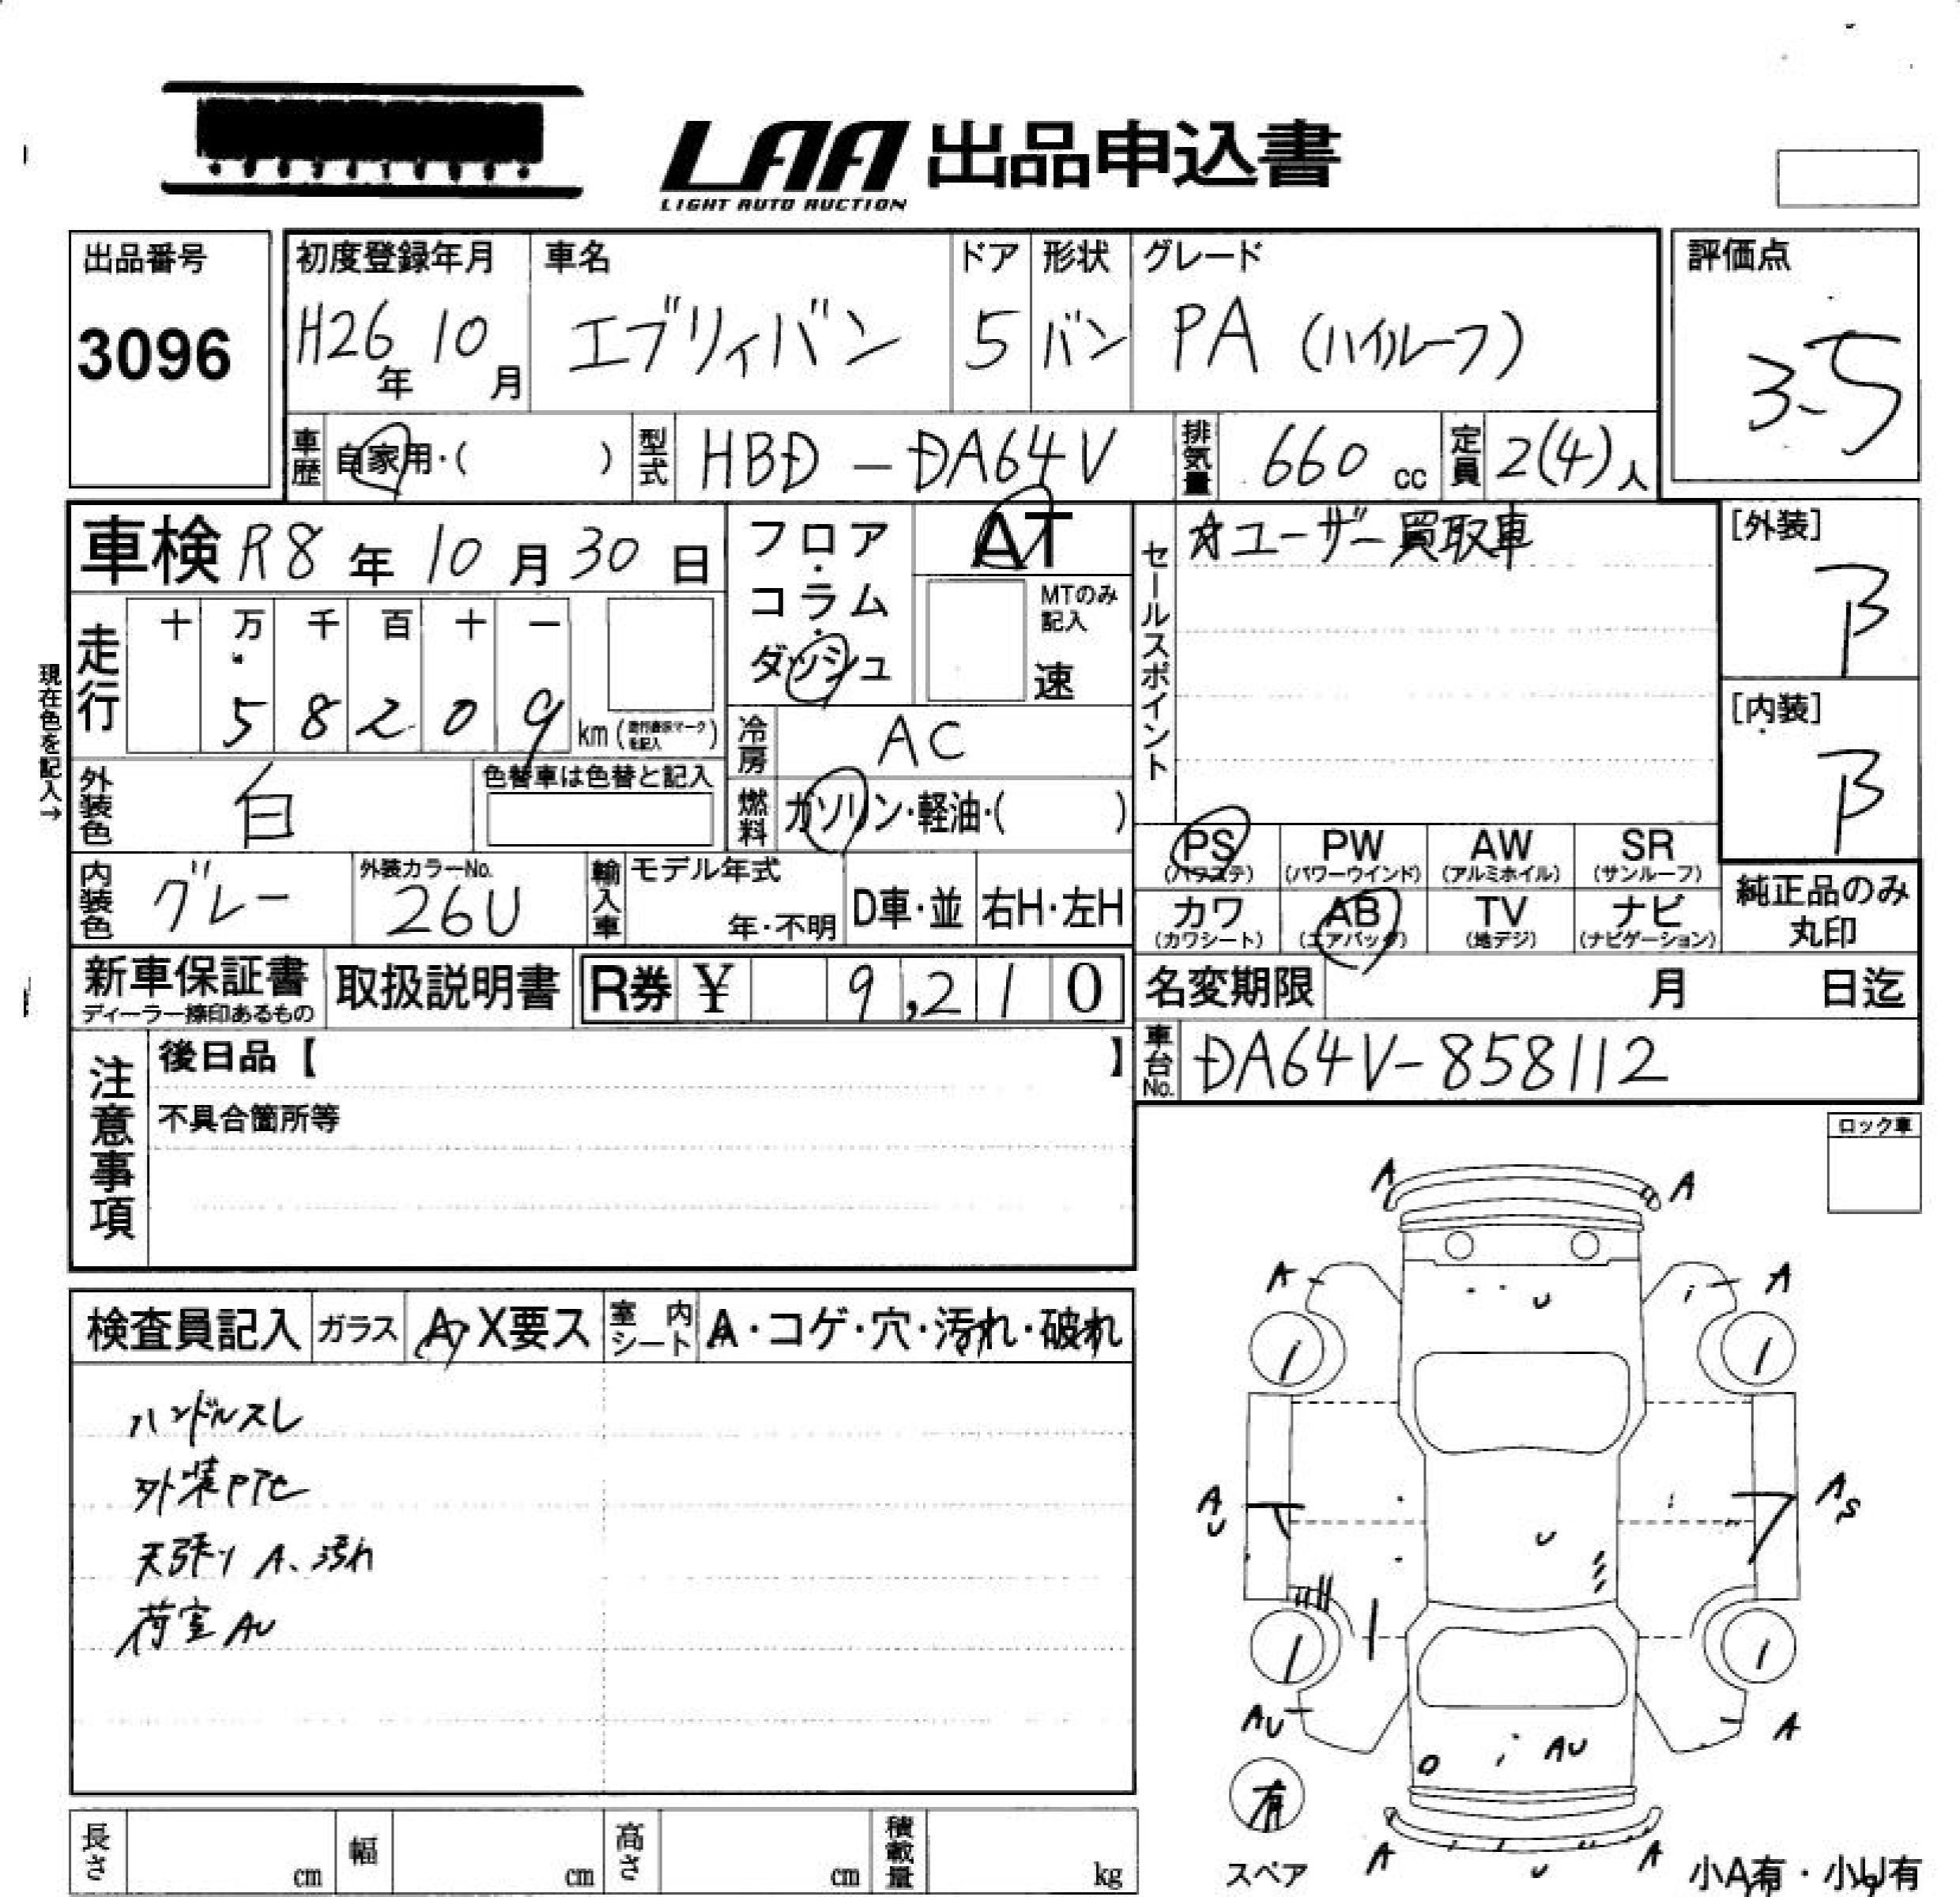 LAA 出品申込書
LIGHT AUTO AUCTION
出品番号
3096
初度登録年月
H26年 10月
車名
エブリィバン
ドア
5
形状
バン
グレード
PA (ハイルーフ)
評価点
3.5
車歴
自家用・( )
型式
HBD - DA64V
排気量
660 cc
定員
2(4)人
車検 R8年 10月 30日
フロア・コラム・ダッシュ
AT
MTのみ記入
速
セールスポイント
☆ユーザー買取車
[外装]
B
[内装]
B
現在色を記入→
走行
十 万 千 百 十 一
5 8 2 0 9 km
冷房
AC
燃料
ガソリン・軽油・( )
外装色
白
色替車は色替と記入
内装色
グレー
外装カラーNo.
26U
輸入車
モデル年式
年・不明
D車・並
右H・左H
PS (パワステ)
PW (パワーウインド)
AW (アルミホイル)
SR (サンルーフ)
カワ (カワシート)
AB (エアバッグ)
TV (地デジ)
ナビ (ナビゲーション)
純正品のみ丸印
新車保証書
ディーラー捺印あるもの
取扱説明書
R券 ¥ 9,210
名変期限 月 日迄
車台No.
DA64V-858112
注意事項
後日品【 】
不具合箇所等
ロック車
検査員記入
ガラス
A・X要ス
室内シート
A・コゲ・穴・汚れ・破れ
ハンドルスレ
天張り A、汚れ
荷室 AU
A A
A A
U
A U
A S
U
AU
A
AU
有
スペア
A U A
小A有・小U有
長さ cm
幅 cm
高さ cm
積載量 kg